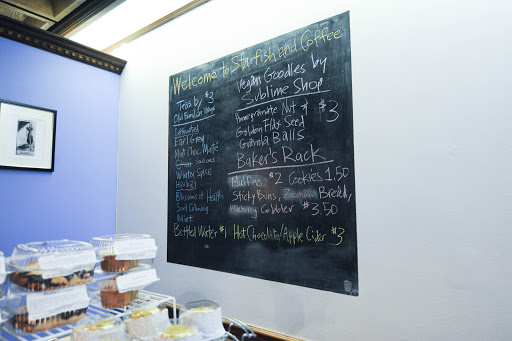 Welcome to Starfish and Coffee
Teas by $3
Caffeinated
Earl Grey
Mint Choc. Maté
Winter Spice
Herbal
Blossoms of Health
Soul Calming
Bottled Water $1
Vegan Goodies by
Sublime Shop
Pomegranate Nut or $3
Golden Flax Seed
Granola Balls
Baker's Rack
Muffins $2 Cookies 1.50
Sticky Buns, Zucchini Bread,
Cobbler $3.50
Hot Chocolate/Apple Cider $3